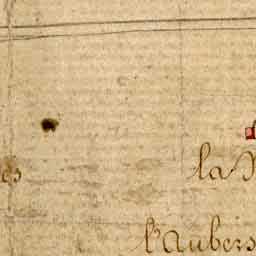 es
la
l'aubers